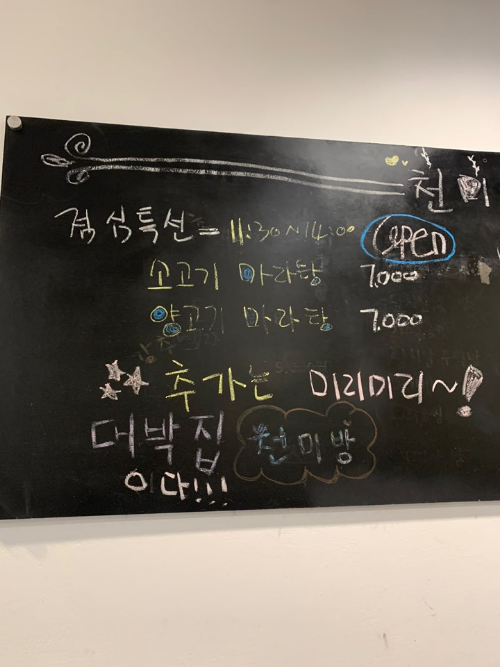 천미
점심특선 = 11:30~14:00 Open
소고기 마라탕 7.000
양고기 마라탕 7.000
추가는 미리미리~!
대박집 천미방
이다!!!